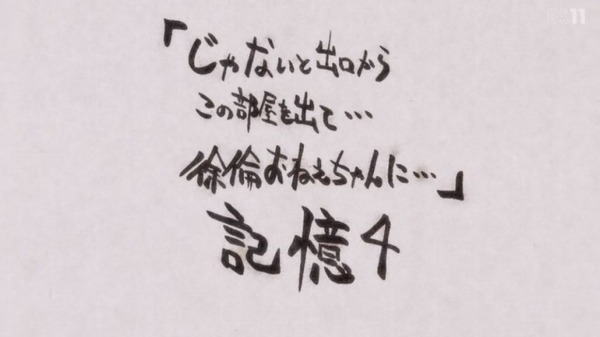 BS11
「じゃないと出口から
この部屋を出て…
徐倫おねえちゃんに…」
記憶4